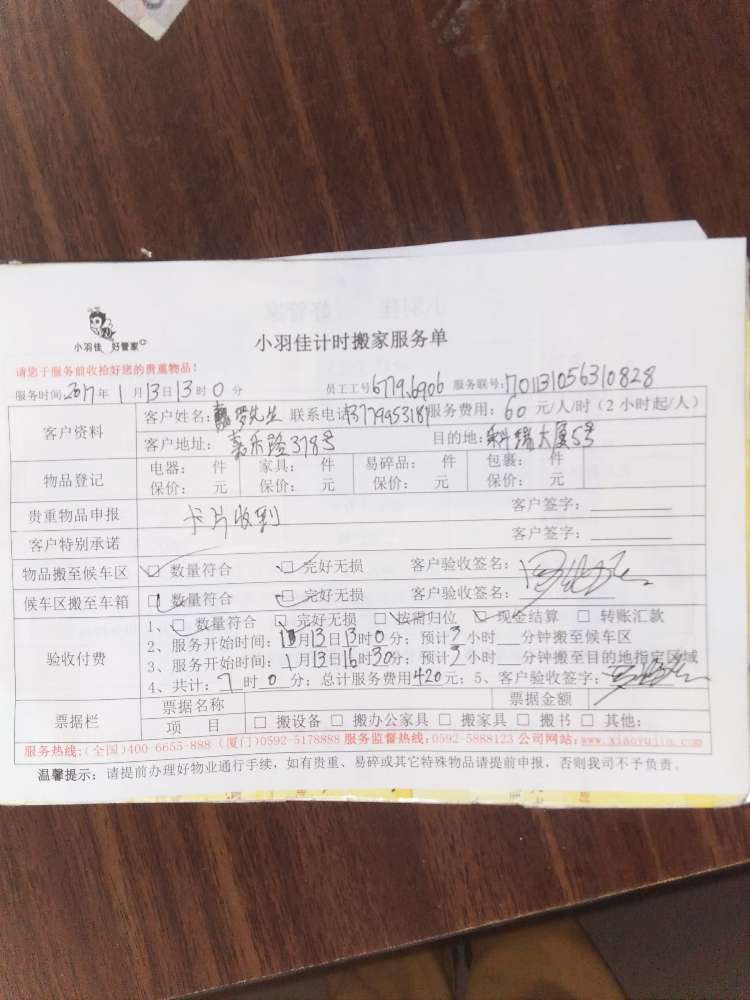 小羽佳 好管家
小羽佳计时搬家服务单
请您于服务前收拾好您的贵重物品！
服务时间:2017年1月13日13时0分 员工工号67796906 服务联号:701131056310828
客户资料
客户姓名: 罗先生 联系电话13779953181服务费用: 60 元/人/时（2小时起/人）
客户地址: 嘉禾路378号 目的地: 大厦5号
物品登记
电器: 件 家具: 件 易碎品: 件 包裹: 件
保价: 元 保价: 元 保价: 元 保价: 元
贵重物品申报 卡片收到 客户签字:
客户特别承诺 客户签字:
物品搬至候车区 □ 数量符合 □ 完好无损 客户验收签名:
候车区搬至车箱 □ 数量符合 □ 完好无损 客户验收签名:
验收付费
1、□ 数量符合 □ 完好无损 □ 按需归位 □ 现金结算 □ 转账汇款
2、服务开始时间: 1月13日13时0分; 预计3小时 分钟搬至候车区
3、服务开始时间: 1月13日16时30分; 预计3小时 分钟搬至目的地指定区域
4、共计: 7时0分; 总计服务费用420元; 5、客户验收签字:
票据栏
票据名称 票据金额
项 目 □ 搬设备 □ 搬办公家具 □ 搬家具 □ 搬书 □ 其他:
服务热线:(全国)400-6655-888 (厦门)0592-5178888 服务监督热线:0592-5888123 公司网站:www.xiaoyujia.com
温馨提示: 请提前办理好物业通行手续，如有贵重、易碎或其它特殊物品请提前申报，否则我司不予负责。